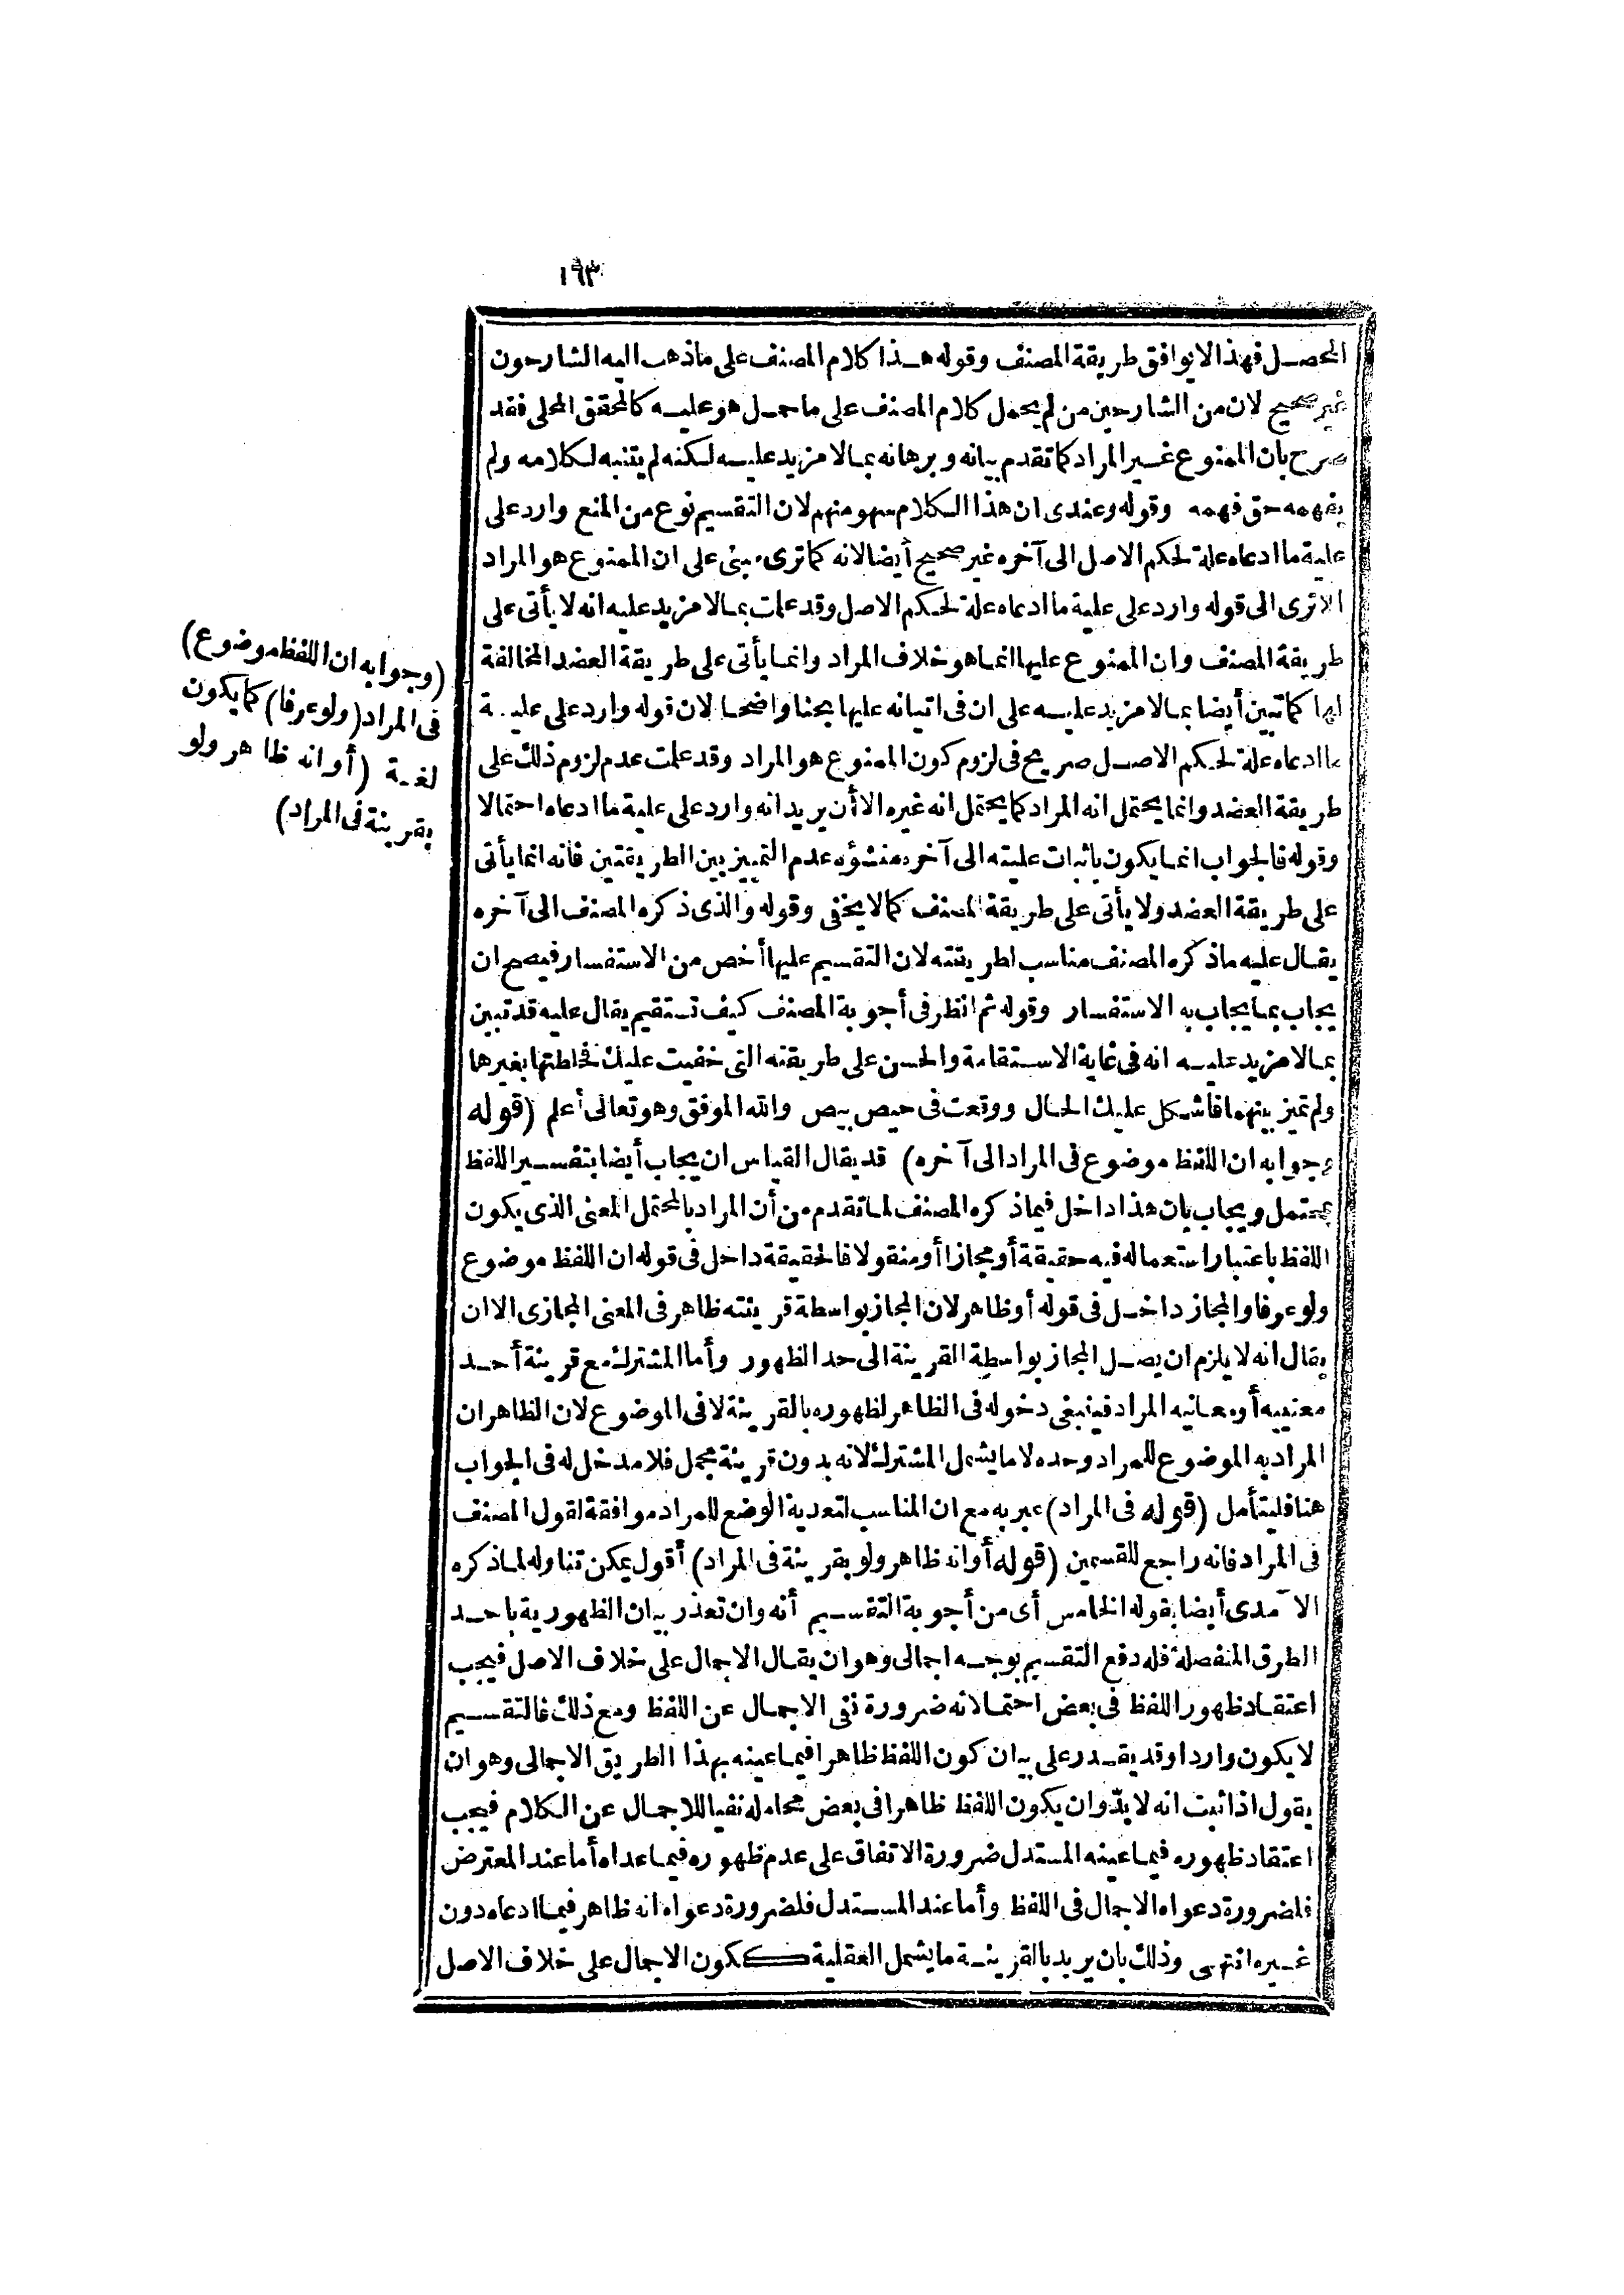 ١٩٣
المحصل فهذا لا يوافق طريقة المصنف وقوله هذا كلام المصنف على ما ذهب اليه الشارحون
غير صحيح لان من الشارحين من لم يحمل كلام المصنف على ما حمل هو عليه كالمحقق المحلى فقد
صرح بان الممنوع غير المراد كما تقدم بيانه وبرهانه بما لا مزيد عليه لكنه لم يتنبه لكلامه ولم
يفهمه حق فهمه وقوله وعندى ان هذا الكلام سهو منهم لان التقسيم نوع من المنع وارد على
علية ما ادعاه علة لحكم الاصل الى آخره غير صحيح أيضا لانه كما ترى مبنى على ان الممنوع هو المراد
الا ترى الى قوله وارد على علية ما ادعاه علة لحكم الاصل وقد علمت بما لا مزيد عليه انه لا يأتى على
طريقة المصنف وان الممنوع عليها انما هو خلاف المراد وانما يأتى على طريقة العضد المخالفة
لها كما تبين أيضا بما لا مزيد عليه على ان فى اتيانه عليها بحثا واضحا لان قوله وارد على علية
ما ادعاه علة لحكم الاصل صريح فى لزوم كون الممنوع هو المراد وقد علمت عدم لزوم ذلك على
طريقة العضد وانما يحتمل انه المراد كما يحتمل انه غيره الا أن يريد انه وارد على علية ما ادعاه احتمالا
وقوله فالجواب انما يكون باثبات عليته الى آخره منشؤه عدم التمييز بين الطريقتين فانه انما يأتى
على طريقة العضد ولا يأتى على طريقة المصنف كما لا يخفى وقوله والذى ذكره المصنف الى آخره
يقال عليه ما ذكره المصنف مناسب لطريقته لان التقسيم عليها أخص من الاستفسار فيصح ان
يجاب بما يجاب به الاستفسار وقوله ثم انظر فى أجوبة المصنف كيف تستقيم يقال عليه قد تبين
بما لا مزيد عليه انه فى غاية الاستقامة والحسن على طريقته التى خفيت عليك فخلطتها بغيرها
ولم تميز بينهما فأشكل عليك الحال ووقعت فى حيص بيص والله الموفق وهو تعالى أعلم (قوله
وجوابه ان اللفظ موضوع فى المراد الى آخره) قد يقال القياس ان يجاب أيضا بتفسير اللفظ
بمحتمل ويجاب بان هذا داخل فيما ذكره المصنف لما تقدم من أن المراد بالمحتمل المعنى الذى يكون
اللفظ باعتبار استعماله فيه حقيقة أو مجازا أو منقولا فالحقيقة داخل فى قوله ان اللفظ موضوع
ولو عرفا والمجاز داخل فى قوله أو ظاهر لان المجاز بواسطة قرينته ظاهر فى المعنى المجازى الا ان
يقال انه لا يلزم ان يصل المجاز بواسطة القرينة الى حد الظهور وأما المشترك مع قرينة أحد
معنييه أو معانيه المراد فينبغى دخوله فى الظاهر لظهوره بالقرينة لا فى الموضوع لان الظاهر ان
المراد به الموضوع للمراد وحده لا ما يشمل المشترك لانه بدون قرينة مجمل فلا مدخل له فى الجواب
هنا فليتأمل (قوله فى المراد) عبر به مع ان المناسب لتعدية الوضع للمراد موافقة لقول المصنف
فى المراد فانه راجع للقسمين (قوله أو انه ظاهر ولو بقرينة فى المراد) أقول يمكن تناوله لما ذكره
الآمدى أيضا بقوله الخامس أى من أجوبة التقسيم أنه وان تعذر بيان الظهورية باحد
الطرق المنفصلة فله دفع التقسيم بوجه اجمالى وهو ان يقال الاجمال على خلاف الاصل فيجب
اعتقاد ظهور اللفظ فى بعض احتمالاته ضرورة نفى الاجمال عن اللفظ ومع ذلك فالتقسيم
لا يكون واردا وقد يقدر على بيان كون اللفظ ظاهرا فيما عينه بهذا الطريق الاجمالى وهو ان
يقول اذا ثبت انه لا بدّ وان يكون اللفظ ظاهرا فى بعض محامله نفيا للاجمال عن الكلام فيجب
اعتقاد ظهوره فيما عينه المستدل ضرورة الاتفاق على عدم ظهوره فيما عداه أما عند المعترض
فلضرورة دعواه الاجمال فى اللفظ وأما عند المستدل فلضرورة دعواه انه ظاهر فيما ادعاه دون
غيره انتهى وذلك بان يريد بالقرينة ما يشمل العقلية ككون الاجمال على خلاف الاصل
(وجوابه ان اللفظ موضوع)
فى المراد (ولو عرفا) كما يكون
لغة (أو انه ظاهر ولو
بقرينة فى المراد)